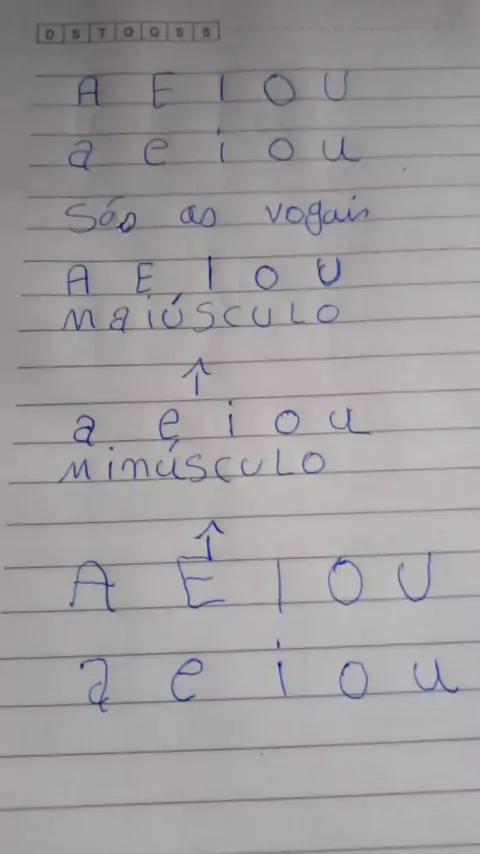 D S T Q Q S S
A E I O U
a e i o u
São as vogais
A E I O U
MAIÚSCULO
↑
a e i o u
MINÚSCULO
↑
A E I O U
a e i o u